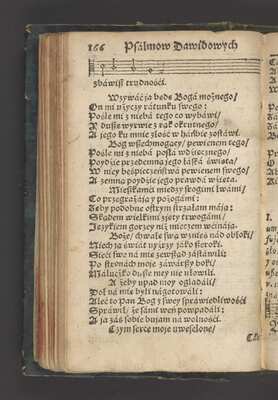 166 Psálmow Dawidowych
zbáwiſſ trudnośći.
Wzywáć ja będę Bogá możnego/
On mi użyczy rátunku ſwego:
Pośle mi z niebá tego co wybáwi/
A duſſę wyrwie z rąk okrutnego/
A jego ku mnie złość w háńbie zoſtáwi.
Bog wſſechmogący/ pewienem tego/
Pośle mi z niebá poſłá wdźięcznego/
Poydźie przedemną jego łáſká świętá/
W niey beśpieczeńſtwá pewienem ſwego/
A zemną poydźie jego prawdá wźiętá.
Mieſſkamći między ſrogimi lwámi/
Co przegrażáją y pożogámi:
Zęby podobne oſtrym ſtrzałam máją:
Skądem wielkimi zięty trwogámi/
Językiem gorzey niż mieczem wćináją.
Boże/ chwałę ſwą wznieś nád obłoki/
Niech ją uważy ujźrzy jáko ſſeroki.
Sieći ſwe ná mię zewſſąd záſtáwili:
Po ſtronách moje záwárſſy boki/
Máluczko duſſe mey nie ułowili.
A żeby upád moy oglądáli/
Doł ná mię byli nágotowáli:
Aleć to Pan Bog z ſwey ſpráwiedliwośći
Spráwił/ że sámi weń powpadáli:
A ja záś ſobie bujam ná wolnośći.
Czym ſerce moje uweſelone/